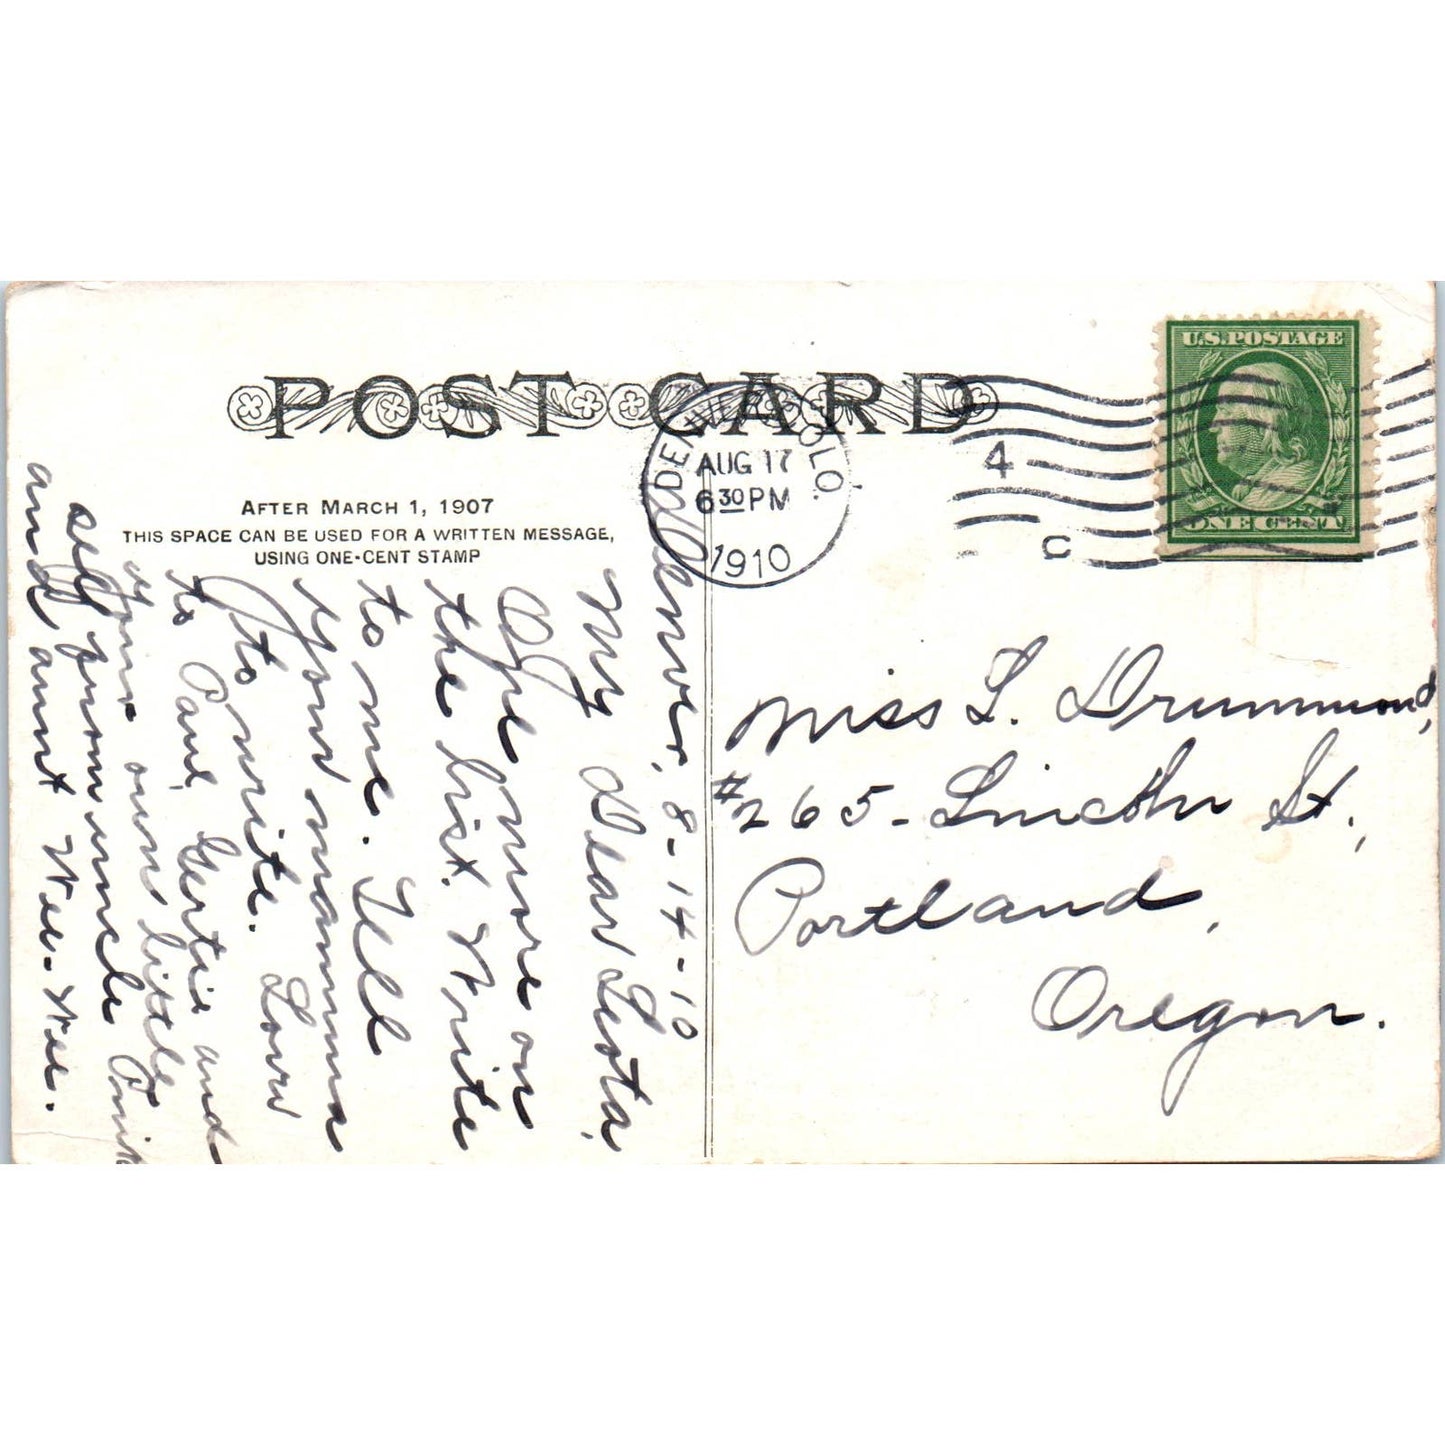 POST CARD
AFTER MARCH 1, 1907
THIS SPACE CAN BE USED FOR A WRITTEN MESSAGE,
USING ONE-CENT STAMP
DENVER COLO.
AUG 17
6 30 PM
1910
4
C
U.S. POSTAGE
ONE CENT
Denver, 8-14-10
My Dear Leota,
One more on
the list. Write
to me. Tell
your mamma
to write. Love
to Paul, Gertie and
your own little
self from uncle
and aunt Wee-Wee.
Miss L. Drummond,
#265-Lincoln St.,
Portland,
Oregon.